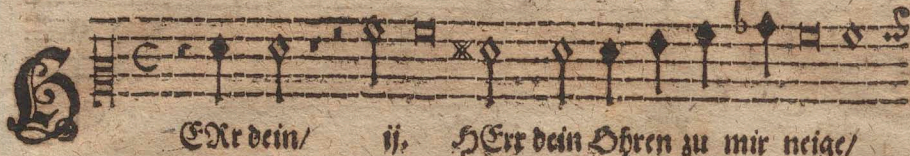 HERr dein/ ij. HErr dein Ohren zu mir neige/